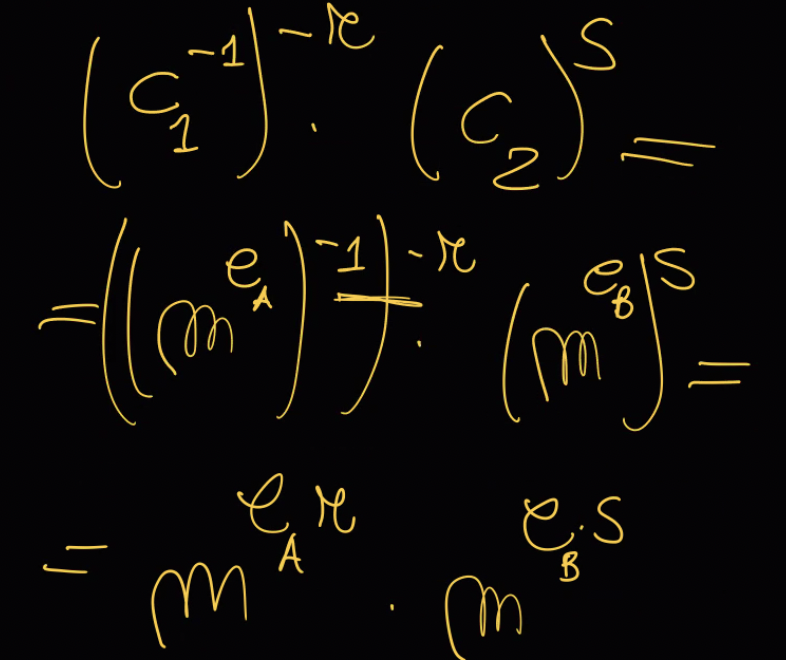 (C₁⁻¹)⁻ʳ · (C₂)ˢ =
= ((m^{e_A})⁻¹)⁻ʳ · (m^{e_B})ˢ =
= m^{e_A r} · m^{e_B · s}